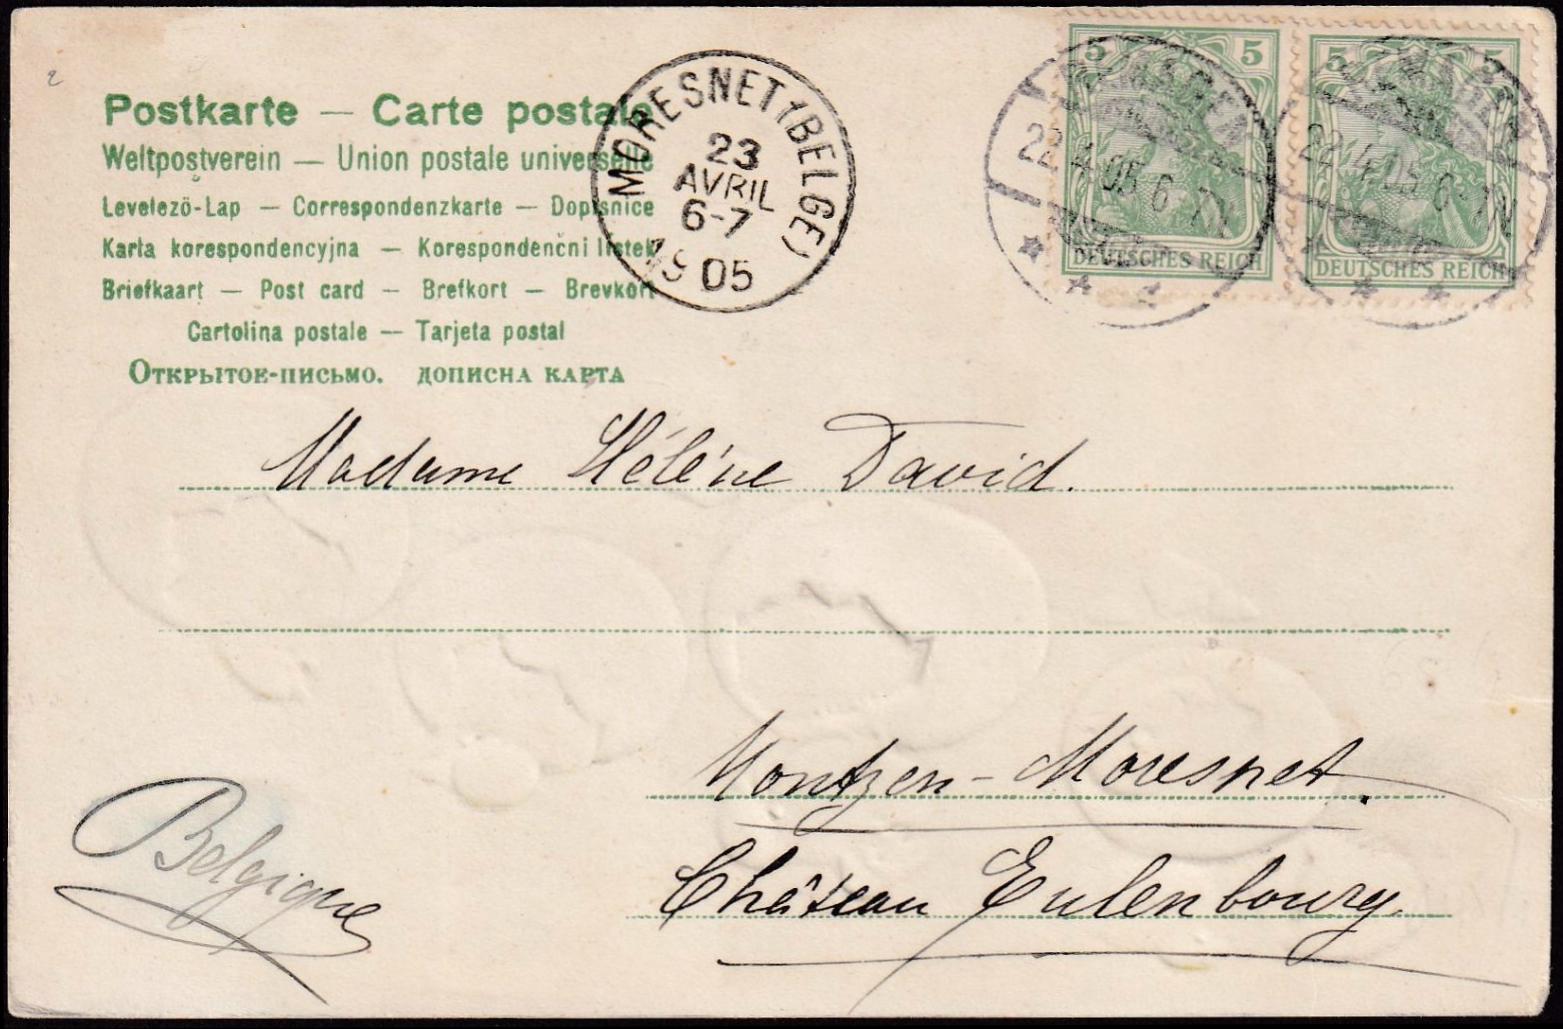 2
Postkarte — Carte postale
Weltpostverein — Union postale universelle
Levelezö-Lap — Correspondenzkarte — Dopisnice
Karta korespondencyjna — Korespondenční lístek
Briefkaart — Post card — Brefkort — Brevkort
Cartolina postale — Tarjeta postal
Открытое-письмо. дописна карта
MORESNET (BELGE)
23
AVRIL
6-7
1905
5 5
DEUTSCHES REICH
22.4.05. 6-7N
5 5
DEUTSCHES REICH
22.4.05. 6-7N
Madame Hélène David.
Montzen-Moresnet.
Château Eulenbourg.
Belgique